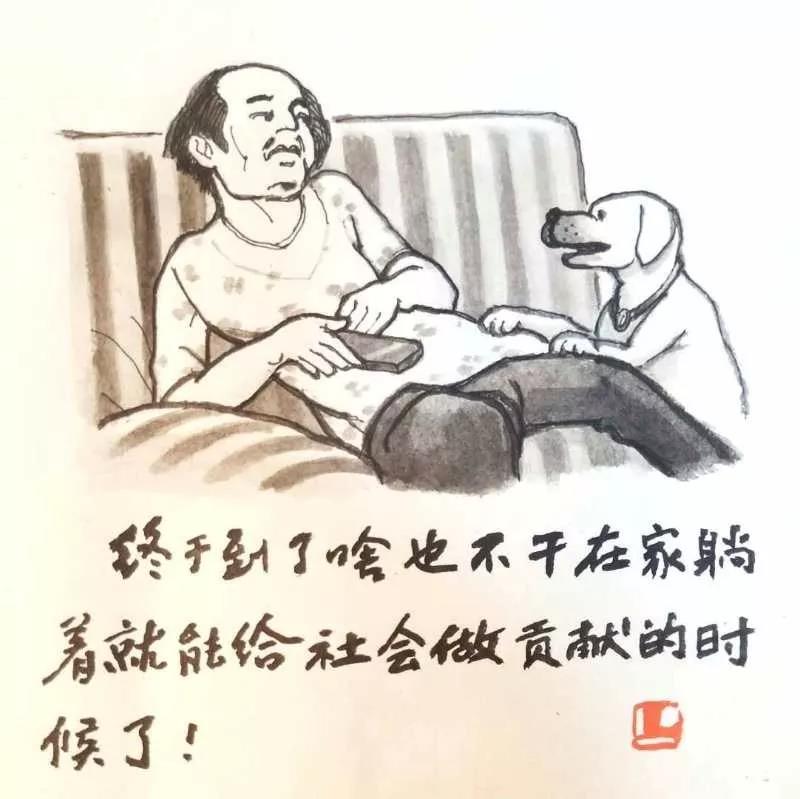 终于到了啥也不干在家躺
着就能给社会做贡献的时
候了！